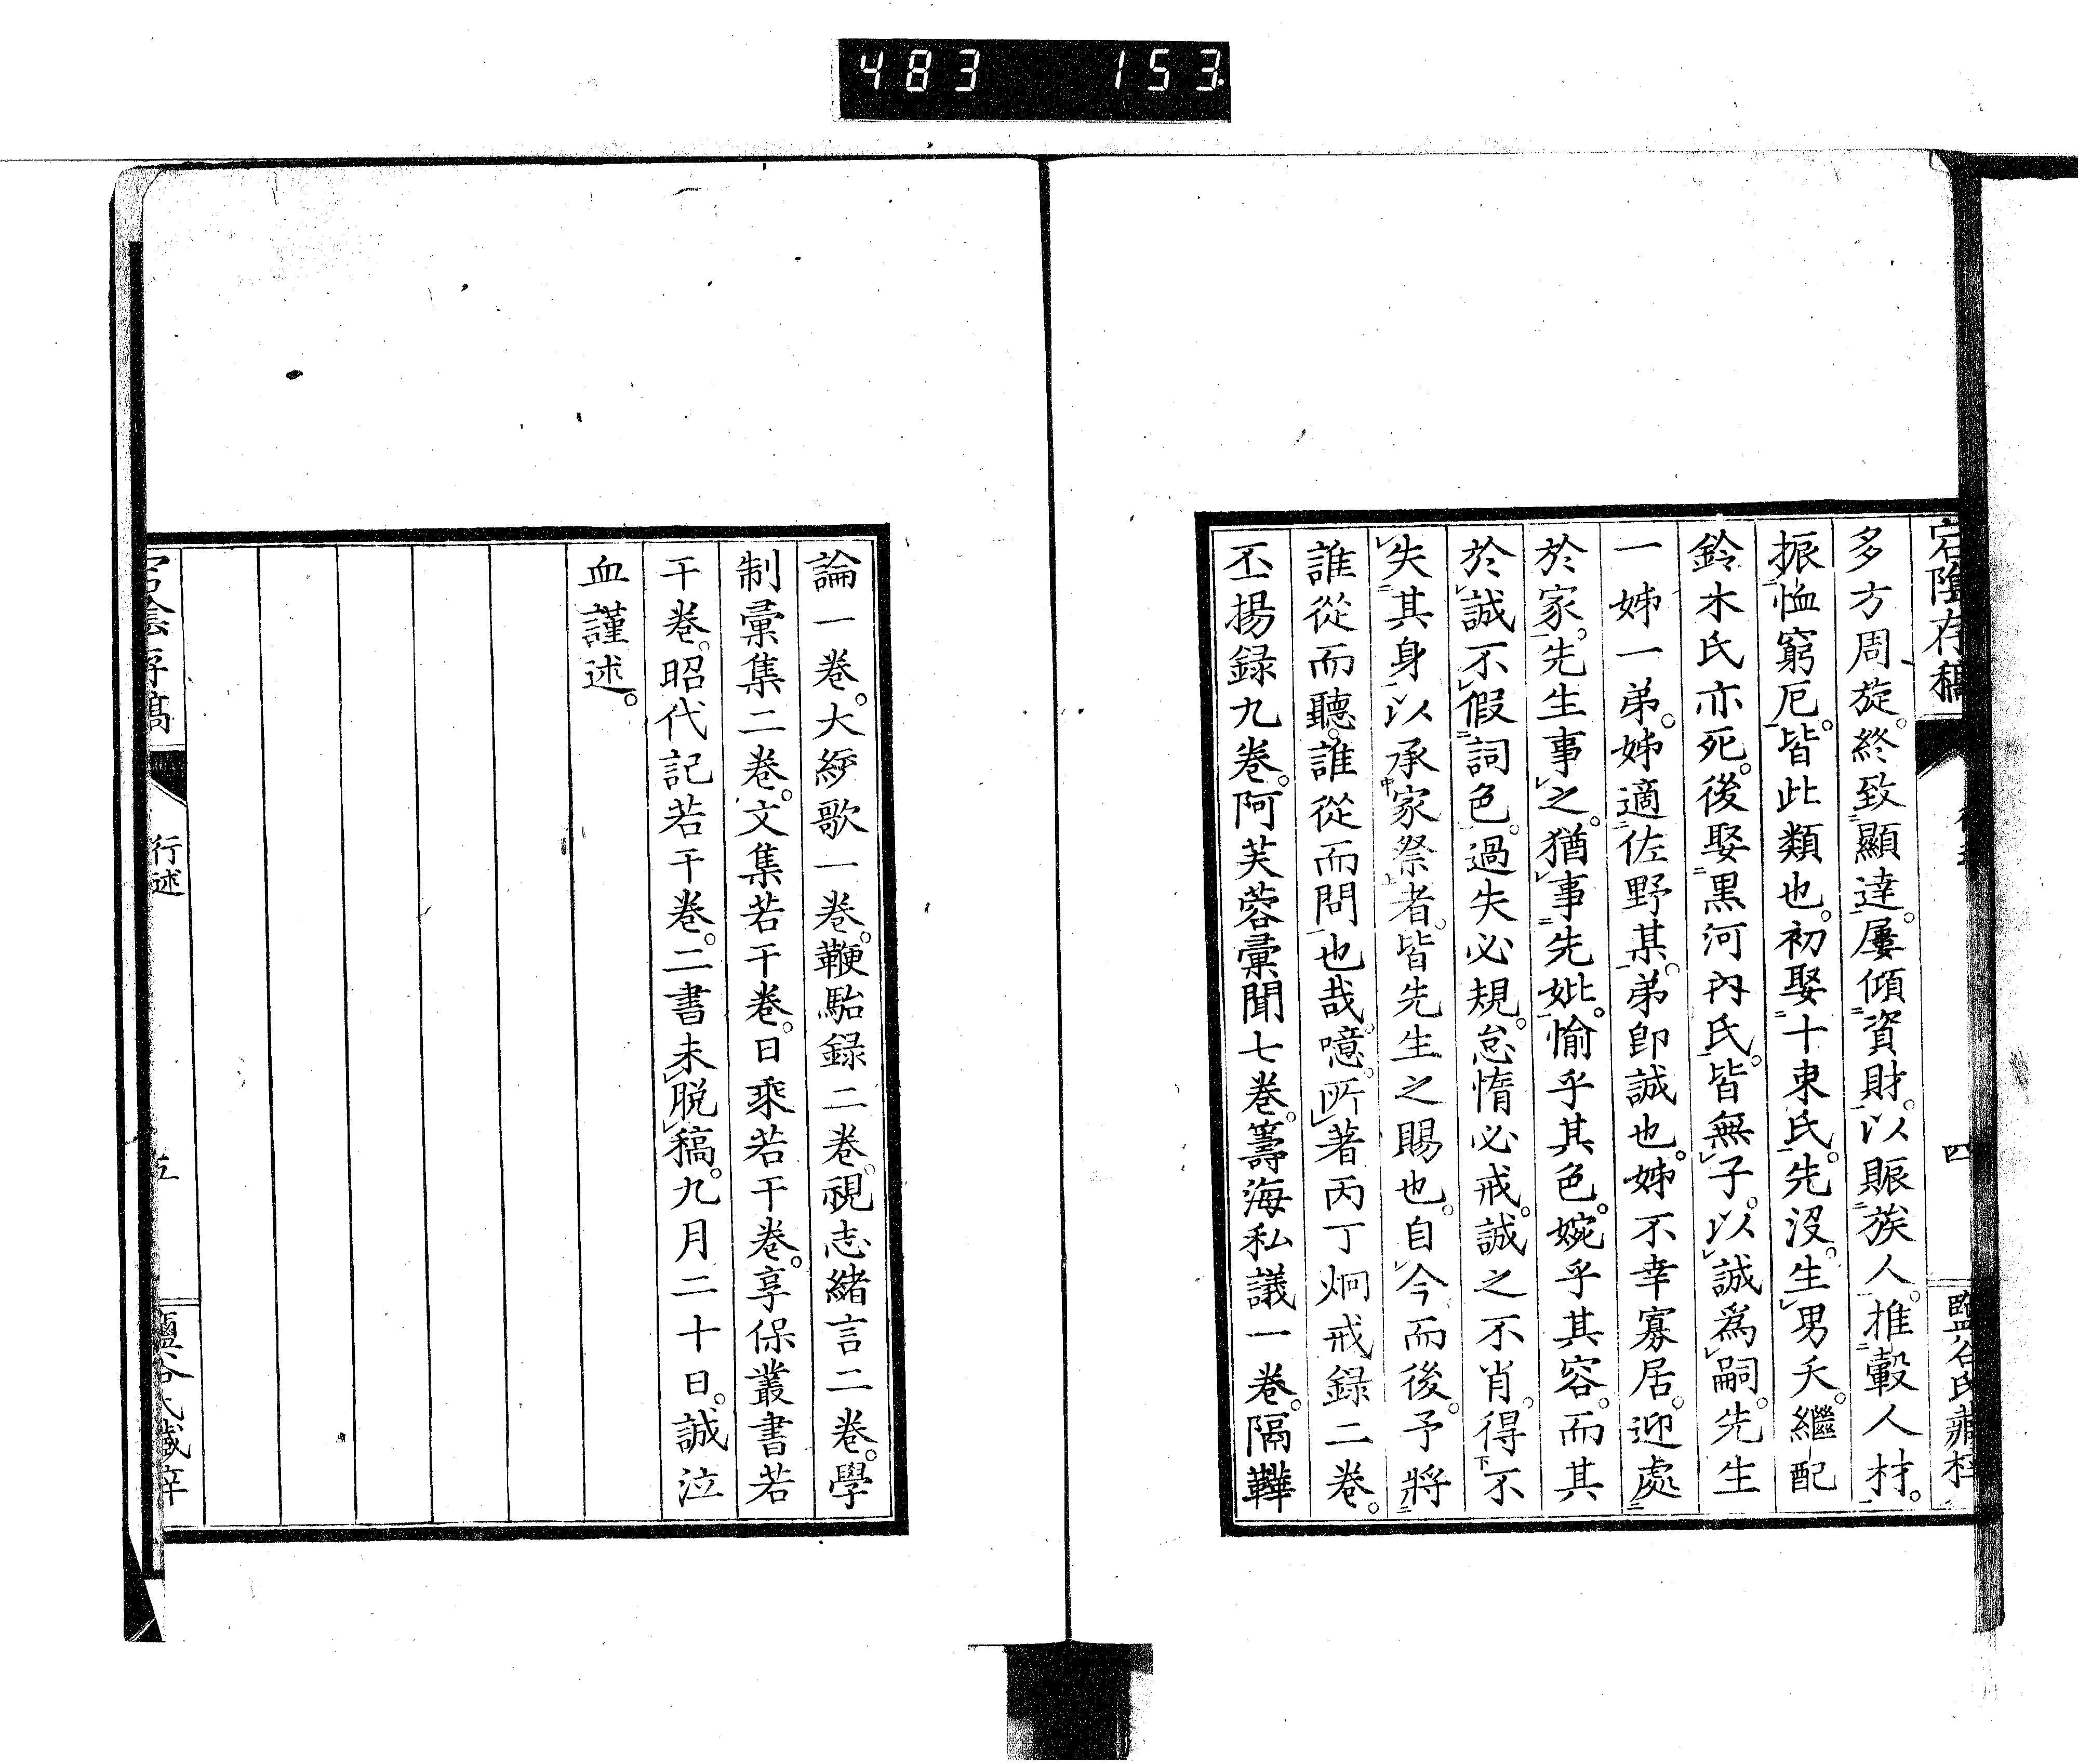 483 153
宕陰存稿 四
多方周旋。終致顯達。屢傾資財。以賑族人。推轂人材。
振恤窮厄。皆此類也。初娶十束氏。先沒。生男夭。繼配
鈴木氏亦死。後娶黒河內氏。皆無子。以誠爲嗣。先生
一姊一弟。姊適佐野某。弟卽誠也。姊不幸寡居。迎處
於家。先生事之。猶事先妣。愉乎其色。婉乎其容。而其
於誠不假詞色。過失必規。怠惰必戒。誠之不肖。得不
失其身以承家祭者。皆先生之賜也。自今而後。予將
誰從而聽。誰從而問也哉。噫。所著丙丁炯戒録二卷。
丕揚録九卷。阿芙蓉彙聞七卷。籌海私議一卷。隔鞾
論一卷。大統歌一卷。鞭駘録二卷。視志緒言二卷。學
制彙集二卷。文集若干卷。日乘若干卷。享保叢書若
干卷。昭代記若干卷。二書未脱稿。九月二十日。誠泣
血謹述。
行述